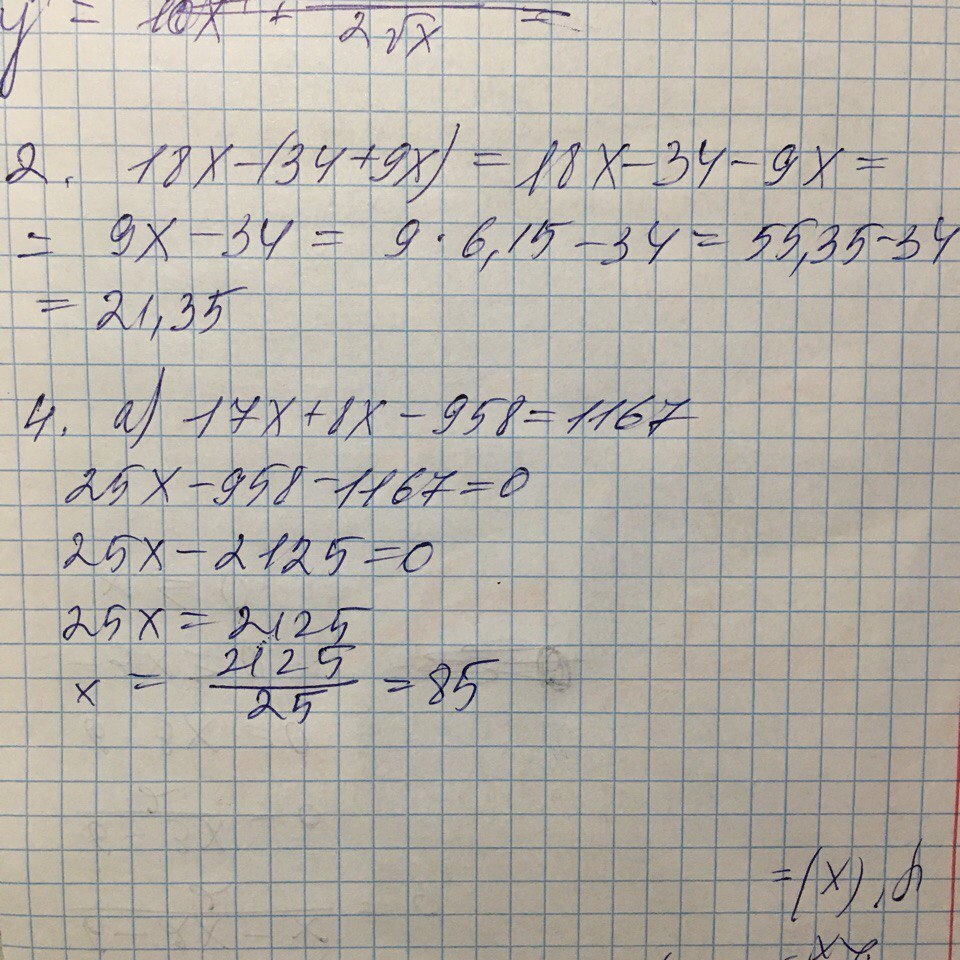 2√x =
2. 18x-(34+9x) = 18x-34-9x =
= 9x-34 = 9·6,15-34 = 55,35-34
= 21,35
4. a) 17x+8x-958=1167
25x-958-1167=0
25x-2125=0
25x=2125
x = 2125/25 = 85